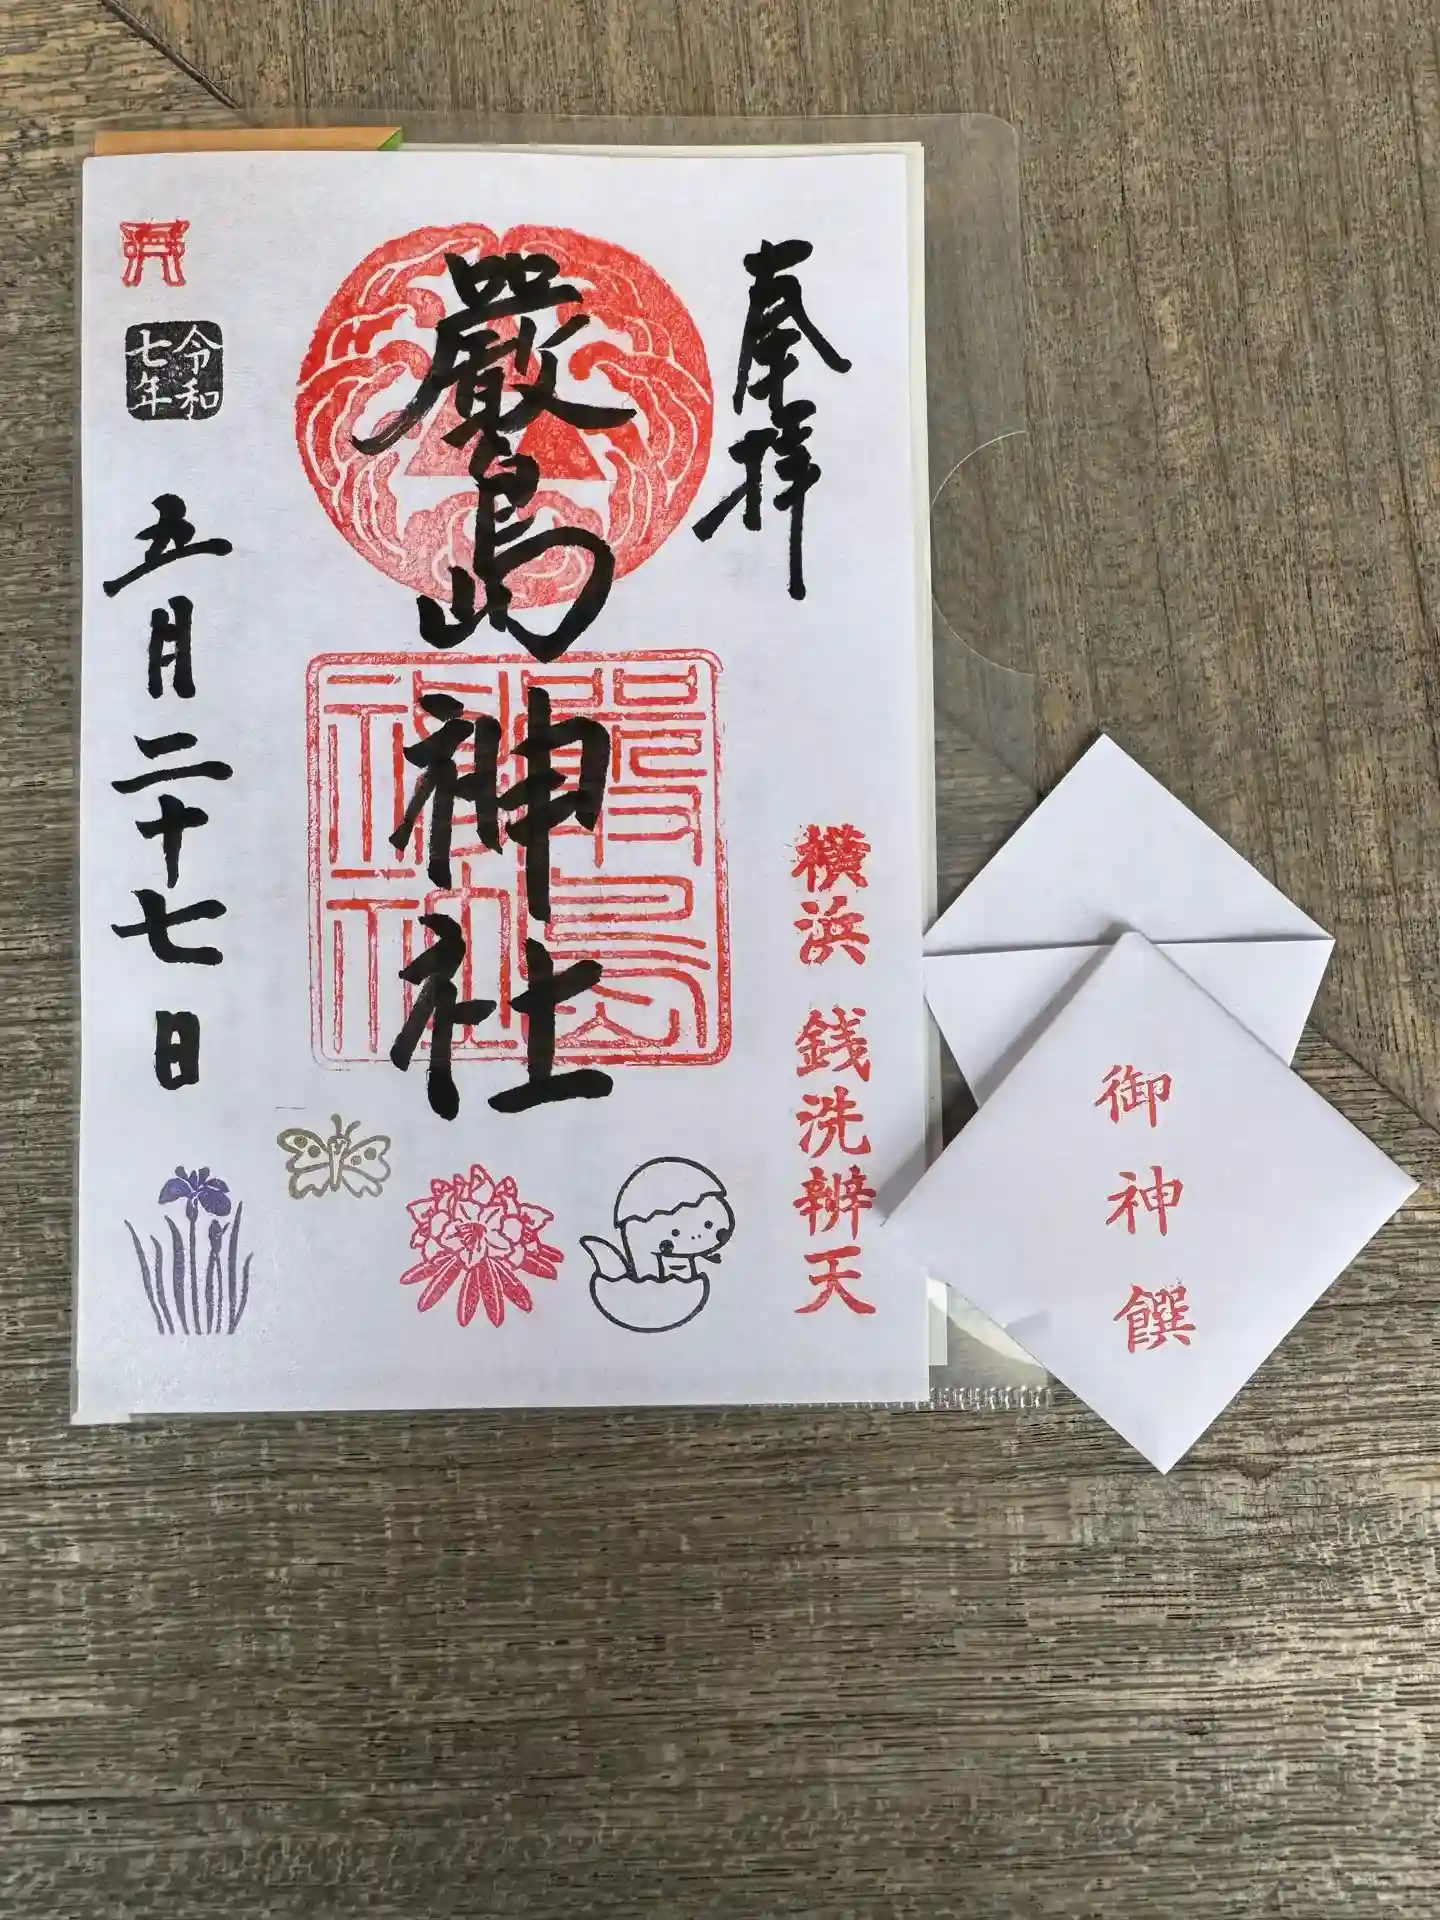 奉拝
横浜 銭洗辨天
嚴島神社
嚴島
神社
令和
七年
五月二十七日
御神饌